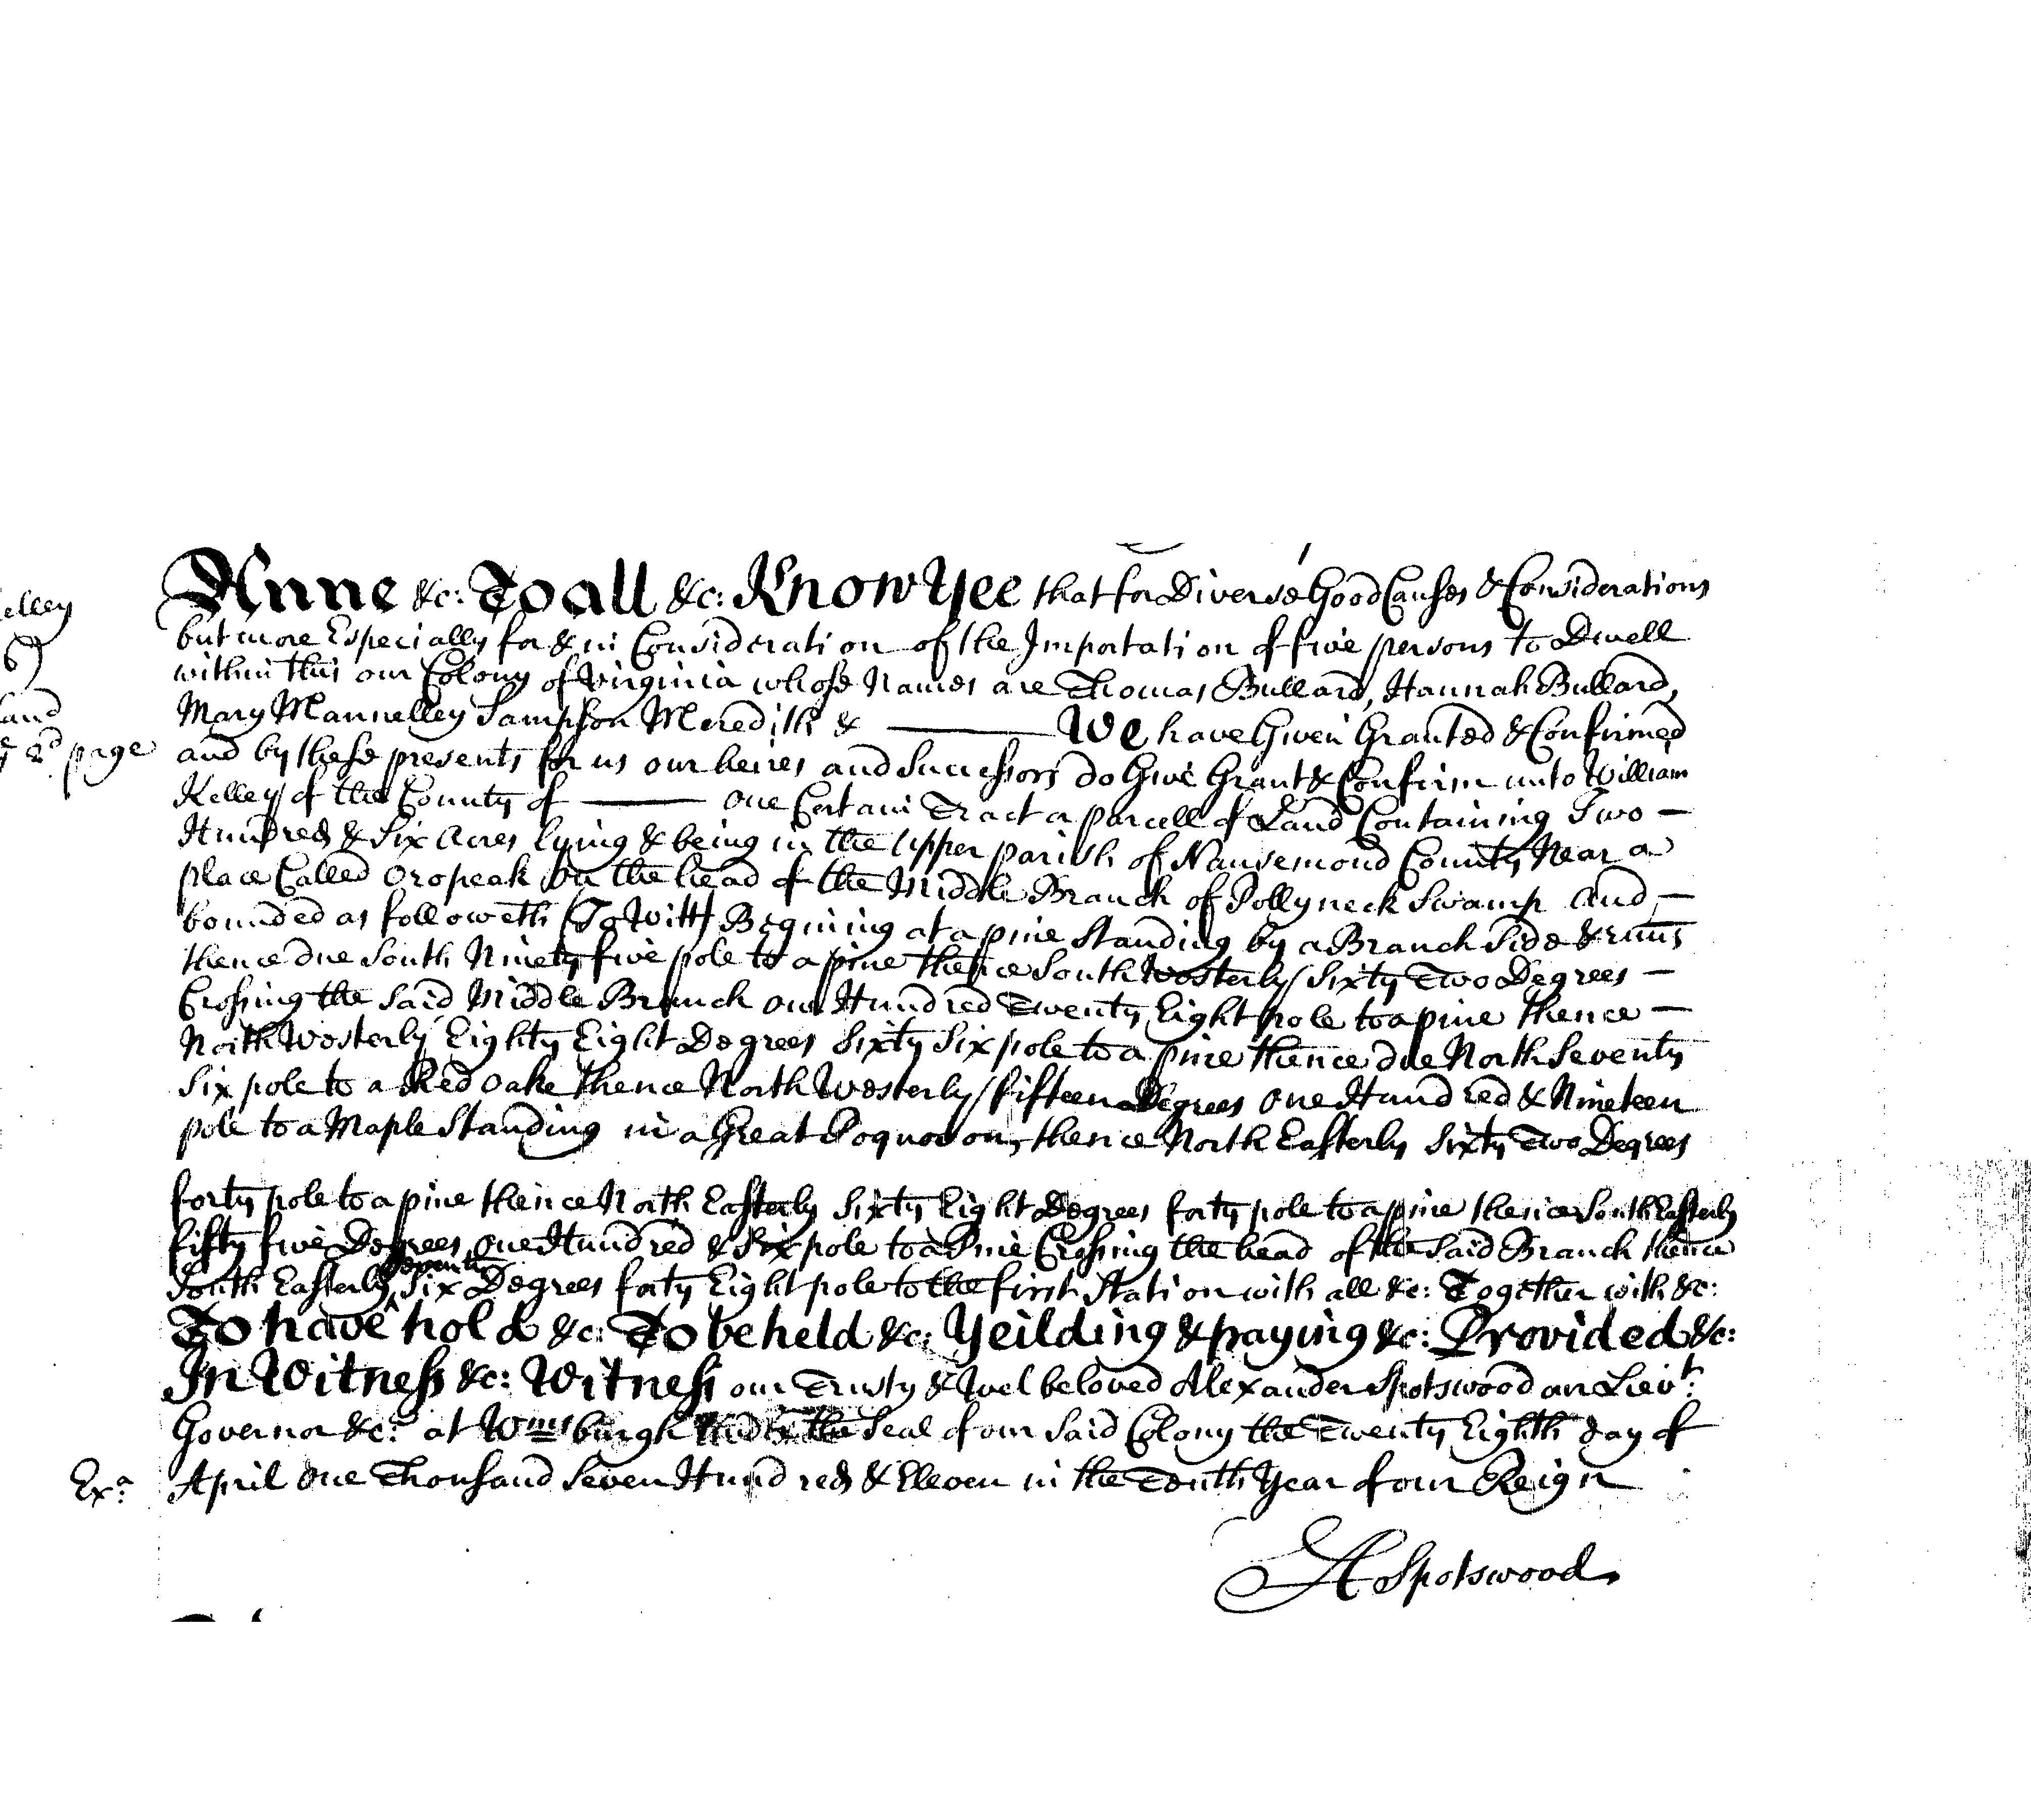 Anne &c: To all &c: Know Yee that for Diverse Good Causes & Considerations
but more Especially for & in Consideration of the Importation of five persons to Dwell
within this our Colony of Virginia whose Names are Thomas Bullard, Hannah Bullard,
Mary Mannelley Sampson Meredith & ——— We have Given Granted & Confirmed
and by these presents for us our heires and Successors do Give Grant & Confirm unto William
Kelley of the County of ——— One Certain Tract or parcell of Land Containing Two —
Hundred & Six Acres lying & being in the upper parish of Nansemond County Near a
place Called Oropeak on the head of the Middle Branch of Pollyneck Swamp And —
bounded as followeth (To Witt) Begining at a pine Standing by a Branch Side & runs
thence due South Ninety five pole to a pine thence South Westerly Sixty Two Degrees —
Crossing the Said Middle Branch one Hundred Twenty Eight pole to a pine thence —
North Westerly Eighty Eight Degrees Sixty Six pole to a pine thence due North Seventy
Six pole to a Red Oake thence North Westerly fifteen Degrees One Hundred & Nineteen
pole to a Maple Standing in a Great Poquoson, thence North Easterly Sixty Two Degrees
forty pole to a pine thence North Easterly Sixty Eight Degrees forty pole to a pine thence South Easterly
fifty five Degrees One Hundred & Six pole to a Pine Crossing the head of the Said Branch thence
South Easterly Seventy Six Degrees forty Eight pole to the first Station with all &c: Together with &c:
To have hold &c: To be held &c: Yeilding & paying &c: Provided &c:
In Witness &c: Witness our Trusty & Wel beloved Alexander Spotswood our Lievt:
Governor &c: at Wmsburgh the Seal of our Said Colony the Twenty Eighth day of
April One Thousand Seven Hundred & Eleven in the Tenth Year of our Reign
A Spotswood
elley
6)
and
2d page
Exa: